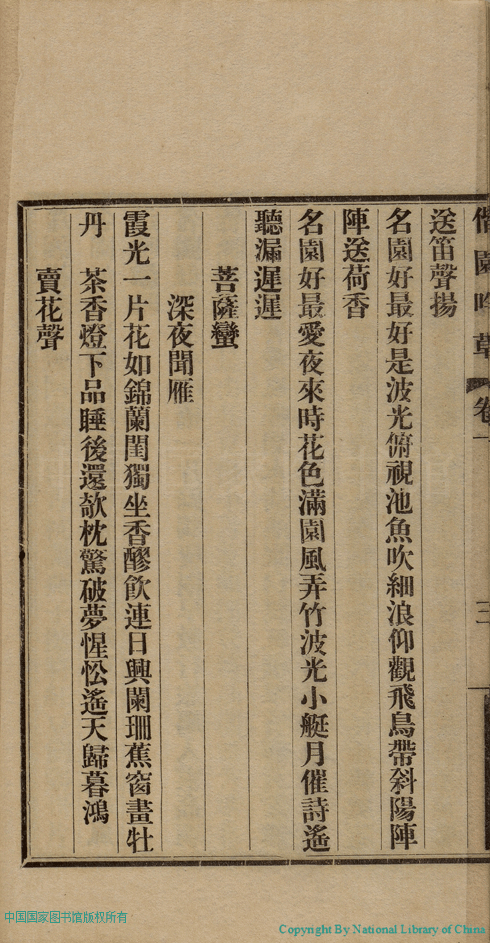 偕園吟草 卷一 三
送笛聲揚
名園好最好是波光俯視池魚吹細浪仰觀飛鳥帶斜陽陣
陣送荷香
名園好最愛夜來時花色滿園風弄竹波光小艇月催詩遙
聽漏遲遲
菩薩蠻
深夜聞雁
霞光一片花如錦蘭閨獨坐香醪飲連日興闌珊蕉窗畫牡
丹 茶香燈下品睡後還欹枕驚破夢惺忪遙天歸暮鴻
賣花聲
中国国家图书馆版权所有
Copyright By National Library of China